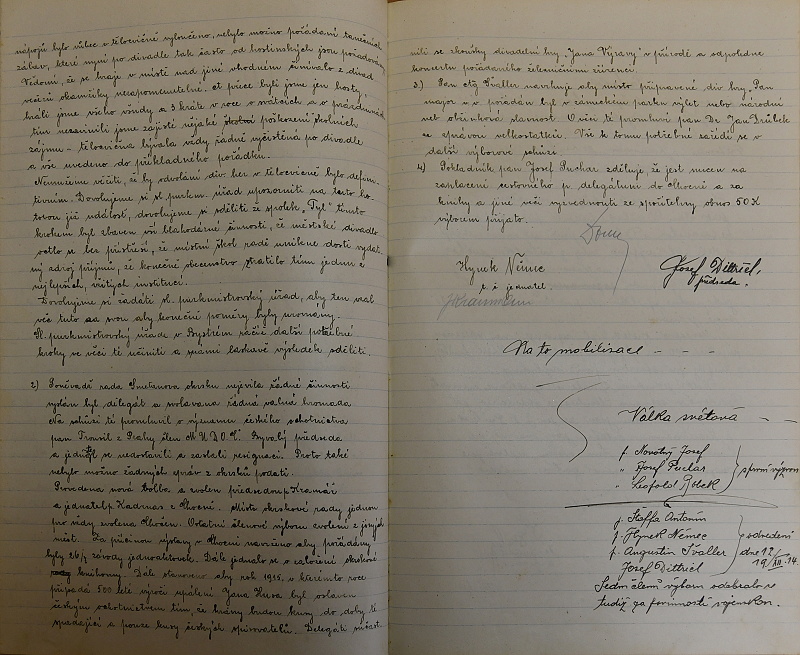 nápojů bylo vůbec v tělocvičně vyloučeno, nebylo možno pořádání tanečních
zábav, které nyní po divadle tak často od hostinských jsou pořádány.
Vědomi, že se hraje v místě nad jiné vhodném skýtalo z divad.
večírů okamžiky nezapomenutelné. Ač přece byli jsme jen hosty,
hráli jsme všeho všudy 2-3 kráte v roce o svátcích a o prázdninách
tím nezavinili jsme zajisté nějaké poškození školních
zájmů - tělocvična bývala vždy řádně vyčistěna po divadle
a vše uvedeno do příkladného pořádku.
Nemůžeme věřiti, že by odvolání div. her v tělocvičně bylo defini-
tivním. Dovolujeme si sl. purkm. úřad upozorniti na tuto ho-
tovou již událost, dovolujeme si sděliti že spolek "Tyl" tímto
krokem byl zbaven vší blahodárné činnosti, že městské divadlo
octlo se bez přístřeší, že místní škol. radě unikne dosti vydat-
ný zdroj příjmů, že konečně obecenstvo ztratilo tím jednu z
nejlepších, vžitých institucí.
Dovolujeme si žádati sl. purkmistrovský úřad, aby ten vzal
věc tuto za svou aby konečně poměry byly urovnány.
Sl. purkmistrovský úřade v Bystrém račiž další potřebné
kroky ve věci té učiniti a námi laskavě výsledek sděliti.
2) Poněvadž rada Smetanova okrsku nejevila řádné činnosti
vyslán byl delegát a svolavána řádná valná hromada
Na schůzi té promluvil o významu českého ochotnictva
pan Trousil z Prahy člen M.U.D.O.Č. Bývalý předseda
a jednatel se nedostavili a zaslali resignaci. Proto také
nebylo možno žádných zpráv z okrsků podati.
Provedena nová volba a zvolen předsedou p. Kramář
a jednatel p. Kadrnas z Chocně. Místo okrskové rady jednou
pro vždy zvolena Choceň. Ostatní členové výboru zvoleni z jiných
míst. Za příčinou výstavy v Chocni navrženo aby pořádány
byly 26/7 závody jednoaktovek. Dále jednalo se o založení okrskové
knihovny. Dále stanoveno aby rok 1915, v kterémto roce
připadá 500 leté výročí upálení Jana Husa byl oslaven
českým ochotnictvem tím, že hrány budou kusy do doby té
spadající a pouze kusy českých spisovatelů. Delegáti súčast-
nili se zkoušky divadelní hry "Jana Výravy" v přírodě a odpoledne
koncertu pořádaného železničními zřízenci.
3) Pan ctg Švaller navrhuje aby místo připravené div. hry "Pan
major" pořádán byl v zámeckém parku výlet nebo národní
neb obžínková slavnost. O věci té promluví pan Dr Jan Drábek
se správou velkostatku. Vše k tomu potřebné zařídí se v
další výborové schůzi.
4) Pokladník pan Josef Puchar zděluje, že jest nucen na
zaplacení cestovného p. delegátům do Chocně a za
knihy a jiné věci vyzvednouti ze spořitelny obnos 50 K
výborem přijato.
Hynek Němec
t. č. jednatel.
Josef Dittrich,
předseda.
Na to mobilisace - - -
Válka světová - -
p. Novotný Josef
" Josef Puchar
" Leopold Bobek
první výpon
p. Štaffa Antonín
p. Hynek Němec
p. Augustin Švaller
Josef Dittrich
odvedeni
dne 12/
19/XII. 14.
Sedm členů výboru odebralo se
tudíž za povinností vojenskou.